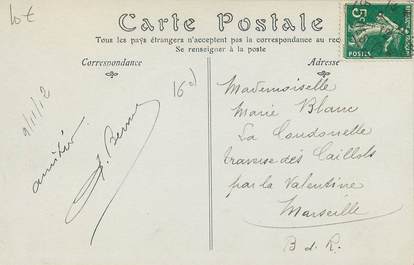 lot
Carte Postale
Tous les pays étrangers n'acceptent pas la correspondance au rec
Se renseigner à la poste
Correspondance
Adresse
5c
POSTES
16d
9/11/12
amitiés
Mademoiselle
Marie Blanc
La Coudonelle
traverse des Caillols
par la Valentine
Marseille
B d. R.